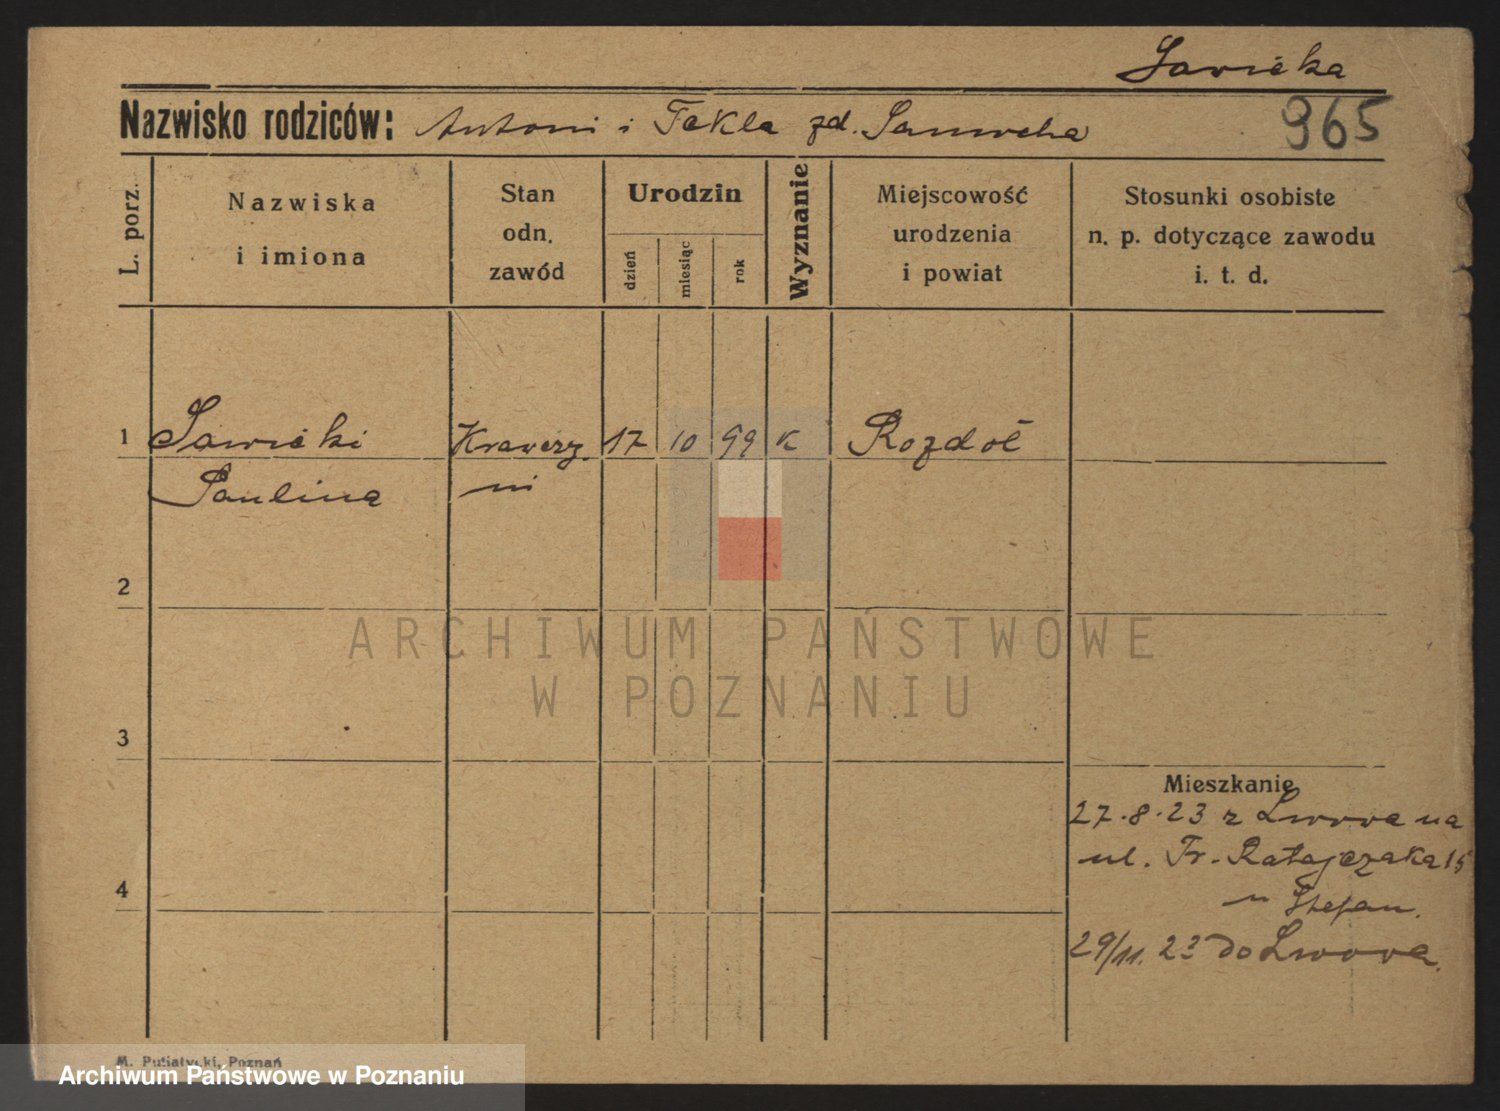 Sawicka
Nazwisko rodziców: Antoni i Tekla zd.
965
L. porz.
Nazwiska
i imiona
Stan
odn.
zawód
Urodzin
dzień
miesiąc
rok
Wyznanie
Miejscowość
urodzenia
i powiat
Stosunki osobiste
n. p. dotyczące zawodu
i. t. d.
1 Sawicki Krawczy 17 10 99 K Rozdoł
Paulina ni
2
3
4
Mieszkanie
27.8.23 z Lwowa na
ul. Fr. Ratajczaka 15
u Stefan.
29/11. 23 do Lwowa.
M. Putiatycki, Poznań
ARCHIWUM PAŃSTWOWE
W POZNANIU
Archiwum Państwowe w Poznaniu